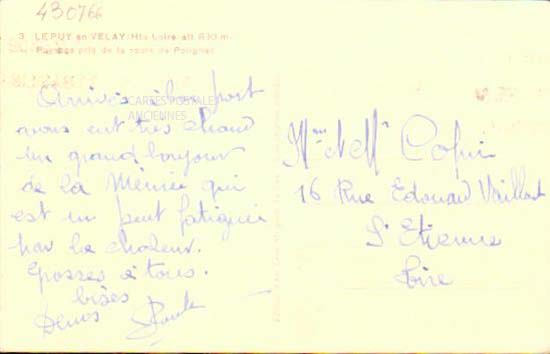 430766
3. LE PUY en VELAY (Hte Loire alt. 630 m.
Paysage pris de la route de Polignac
CARTES POSTALES
ANCIENNES
Arrivés à bon port
nous ont très chaud
un grand bonjour
de la Mémée qui
est un peut fatiguée
par la chaleur.
Grosses à tous.
bises
Mme et Mr
16 Rue Edouard Vaillant
St Etienne
Loire